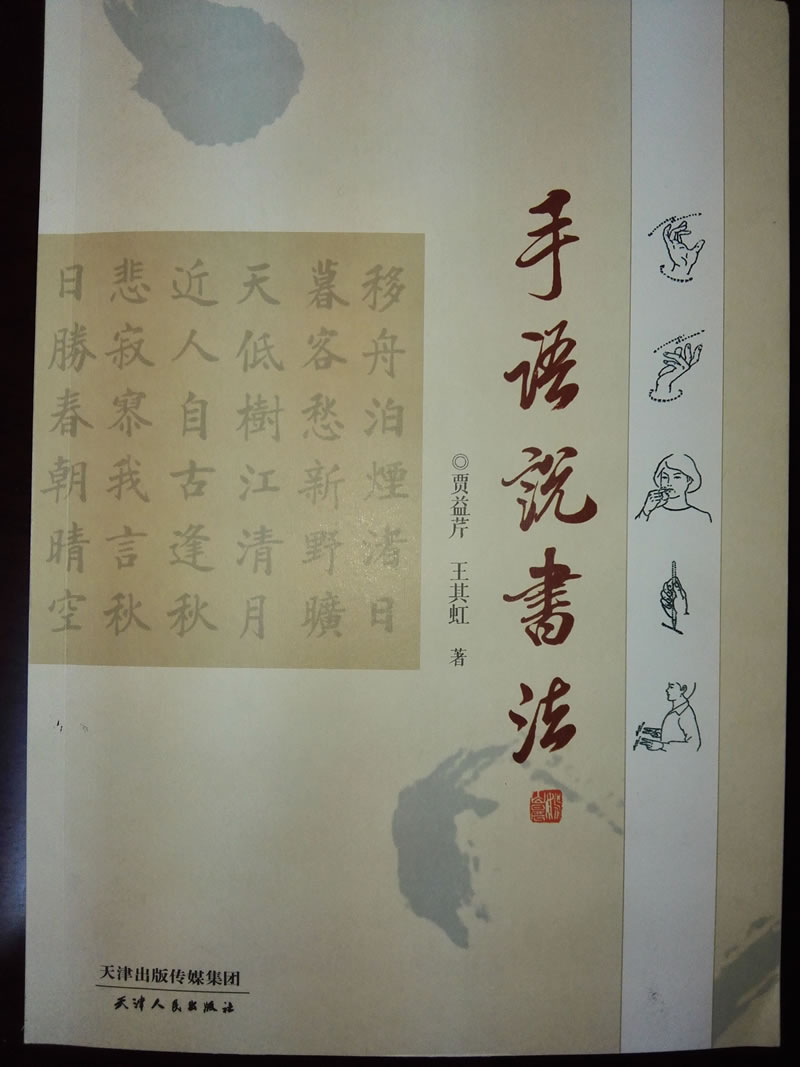 手语说书法
◎贾益芹 王其虹 著
移舟泊煙渚日
暮客愁新野曠
天低樹江清月
近人自古逢秋
悲寂寥我言秋
日勝春朝晴空
天津出版传媒集团
天津人民出版社